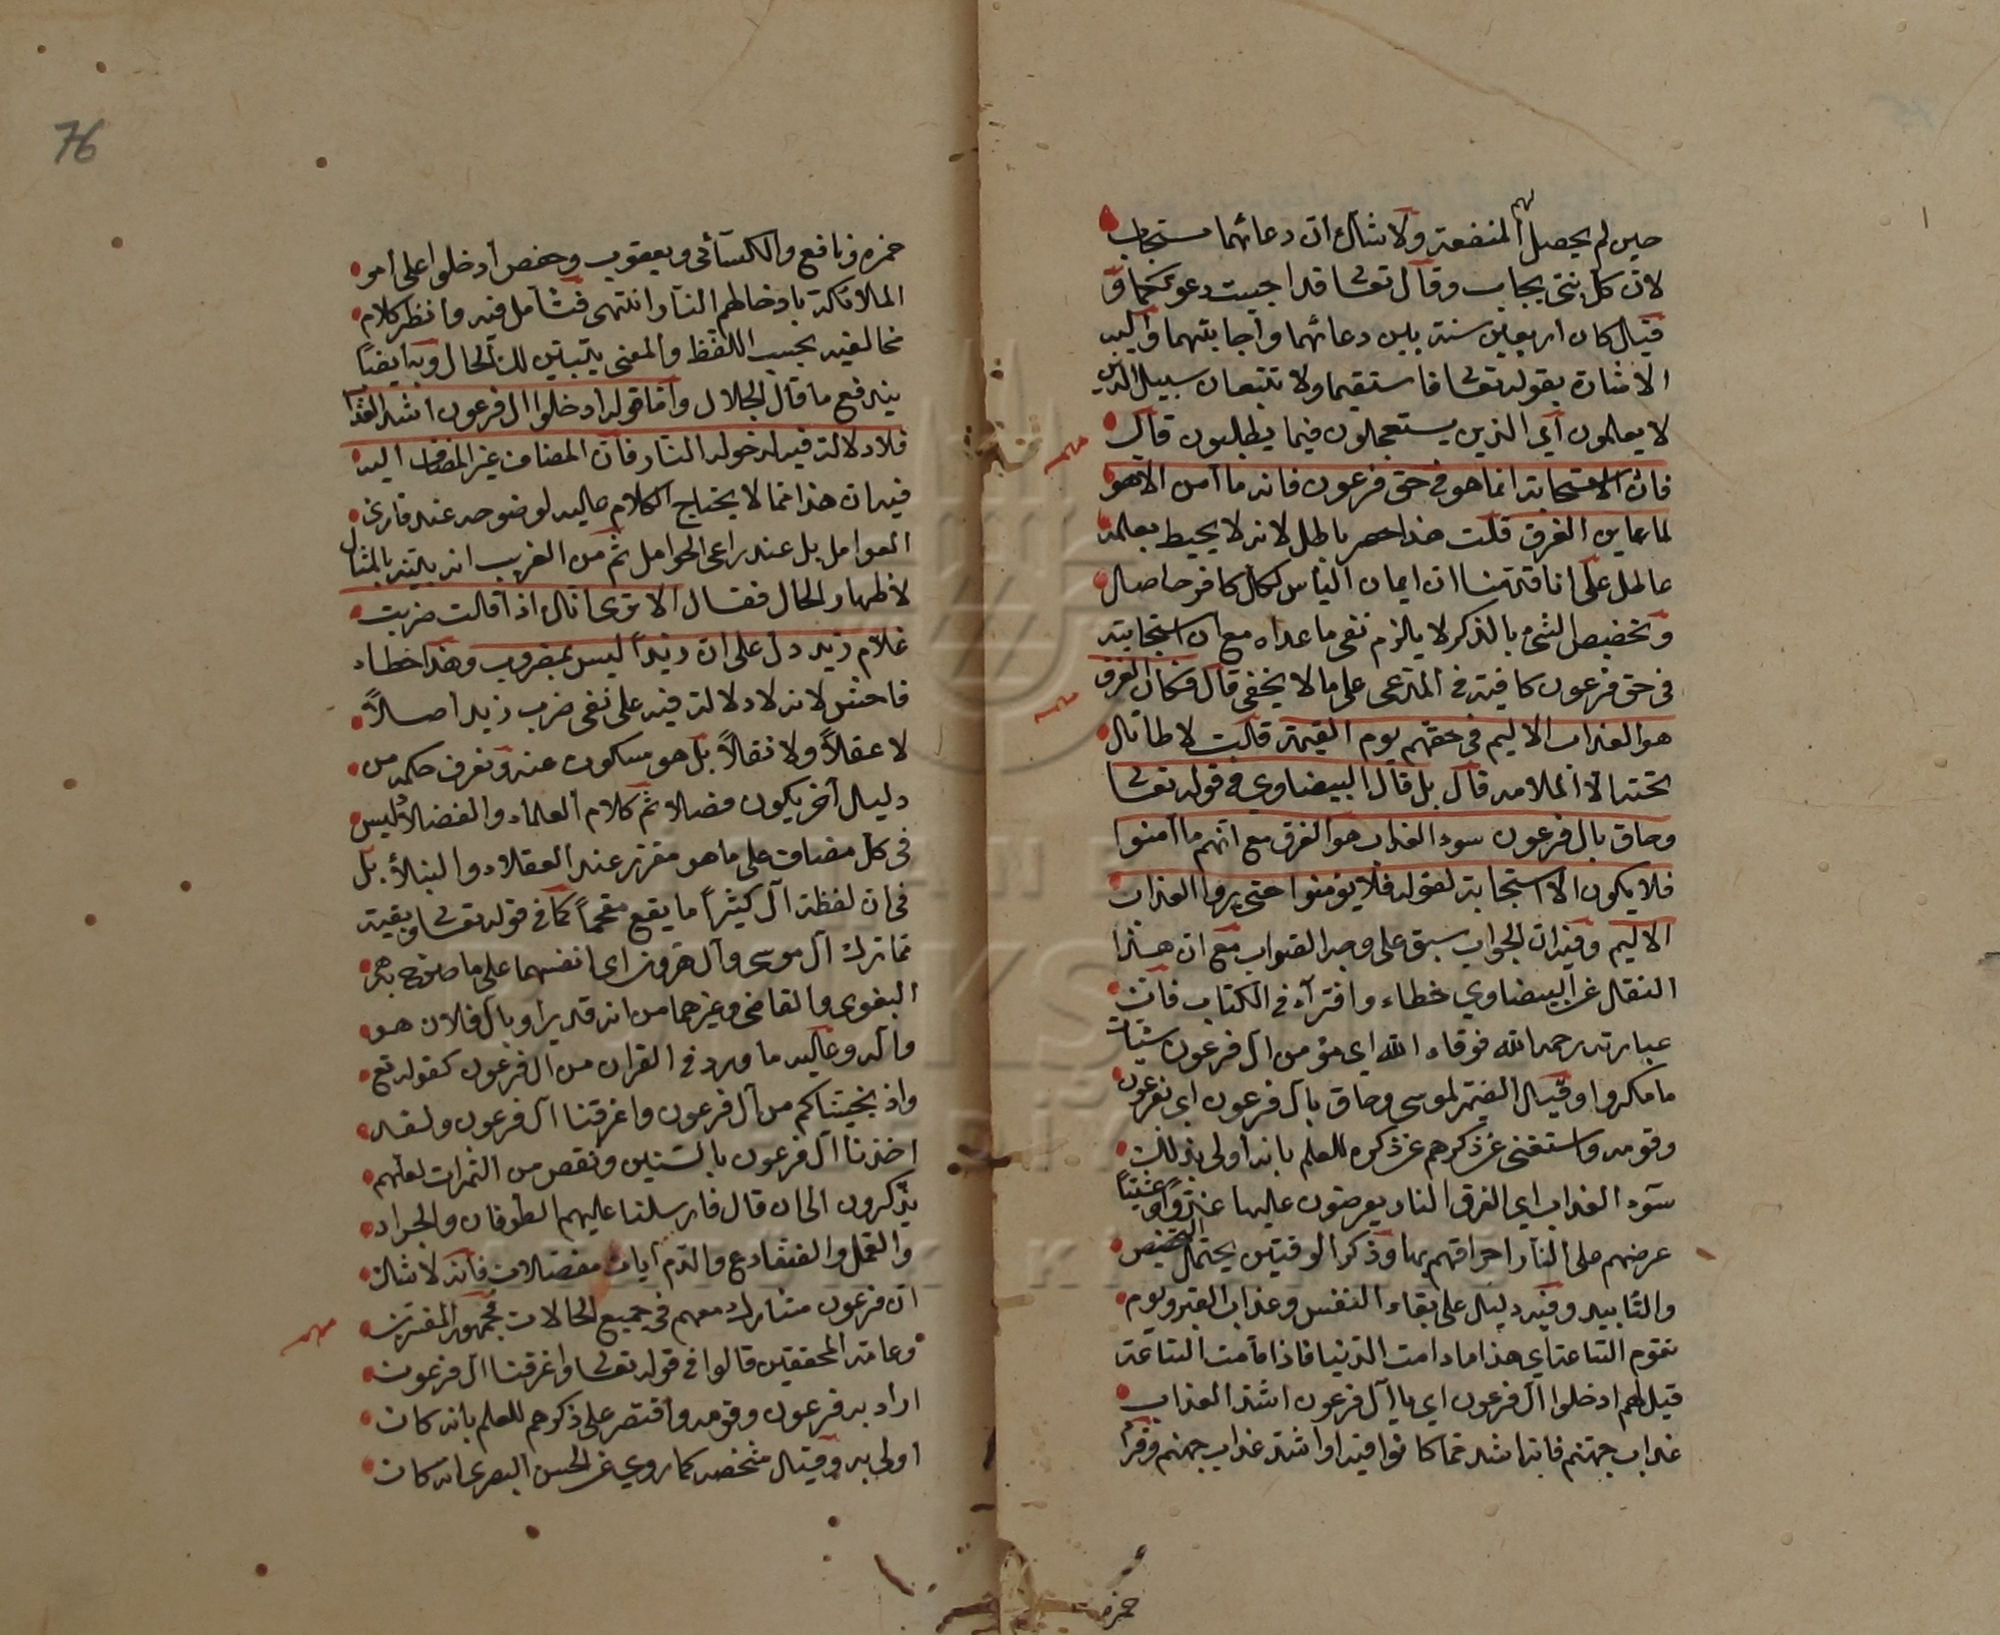 حين لم يحصل لهم المنفعة ولا شك ان دعائهما مستجاب
لان كل نبي يجاب وقال تعالى قد اجيبت دعوتكما و
قيل كان اربعين سنة بين دعائهما واجابتهما واليه
الاشارة بقوله تعالى فاستقيما ولا تتبعان سبيل الذين
لا يعلمون اي الذين يستعجلون فيما يطلبون قال
فان الاستجابة انما هو في حق فرعون فانه ما آمن الا هو
لما عاين الغرق قلت هذا حصر باطل لانه لا يحيط بعلمه
عالم على انا قدمنا ان ايمان اليأس لكل كافر حاصل
وتخصيص الشيء بالذكر لا يلزم نفي ما عداه مع ان استجابته
في حق فرعون كافية في المدعى على ما لا يخفى قال فكان الغرق
هو العذاب الاليم في حقهم يوم القيمة قلت لا طائل
تحته الا الملامة قال بل قال البيضاوي في قوله تعالى
وحاق بال فرعون سوء العذاب هو الغرق مع انهم ما آمنوا
فلا يكون الا استجابة لقوله فلا يؤمنوا حتى يروا العذاب
الاليم وفيه ان الجواب سبق على وجه الصواب مع ان هذا
النقل عن البيضاوي خطاء وافتراء في الكتاب فان
عبارته رحمه الله فوقاه الله اي مؤمن آل فرعون سيئات
ما مكروا وقيل الضمير لموسى وحاق بآل فرعون اي بفرعون
وقومه واستغنى عن ذكرهم عن ذكره للعلم بانه اولى بذلك
سوء العذاب اي الغرق النار يعرضون عليها غدوا وعشيا
عرضهم على النار احراقهم بها وذكر الوقتين يحتمل التخصيص
والتأبيد وفيه دليل على بقاء النفس وعذاب القبر ويوم
تقوم الساعة اي هذا ما دامت الدنيا فاذا قامت الساعة
قيل لهم ادخلوا آل فرعون اي يا آل فرعون اشد العذاب
عذاب جهنم فانه اشد مما كانوا فيه او اشد عذاب جهنم وقرأ
حمزه
76
حمزه ونافع والكسائي ويعقوب وحفص ادخلوا على امر
الملائكة بادخالهم النار انتهى فتأمل فيه وانظر كلام
مخالفيه بحسب اللفظ والمعنى يتبين لك الحال وبه ايضا
يندفع ما قال الجلال واما قوله ادخلوا ال فرعون اشد العذاب
فلا دلالة فيه لدخوله النار فان المضاف غير المضاف اليه
فيه ان هذا مما لا يحتاج الكلام عليه لوضوحه عند قارئ
العوامل بل عند راعي الحوامل ثم من الغريب انه يتنبه بالمثال
لاظهار الحال فقال الا ترى انك اذا قلت ضربت
غلام زيد دل على ان زيدا ليس بمضروب وهذا خطاء
فاحش لانه لا دلالة فيه على نفي ضرب زيد اصلاً
لا عقلاً ولا نقلاً بل هو مسكوت عنه ونعرف حكمه من
دليل آخر يكون فصلا ثم كلام العلماء والفضلاء ليس
في كل مضاف على ما هو مقرر عند العقلاء والنبلاء بل
في ان لفظة آل كثيراً ما يقع مقحماً كما في قوله تعالى وبقية
مما ترك آل موسى وآل هرون اي انفسهما على ما صرح به
البغوي والقاضي وغيرهما من انه قد يراد بآل فلان هو
وآله وعليه ما ورد في القران من آل فرعون كقوله تع
واذ نجيناكم من آل فرعون واغرقنا آل فرعون ولقد
اخذنا آل فرعون بالسنين ونقص من الثمرات لعلهم
يذكرون الى ان قال فارسلنا عليهم الطوفان والجراد
والقمل والضفادع والدم آيات مفصلات فانه لا شك
ان فرعون مشارك معهم في جميع الحالات فجمهور المفسرين
وعامة المحققين قالوا في قوله تعالى واغرقنا آل فرعون
اراد به فرعون وقومه واقتصر على ذكرهم للعلم بانه كان
اولى به وقيل شخصه كما روي عن الحسن البصري انه كان